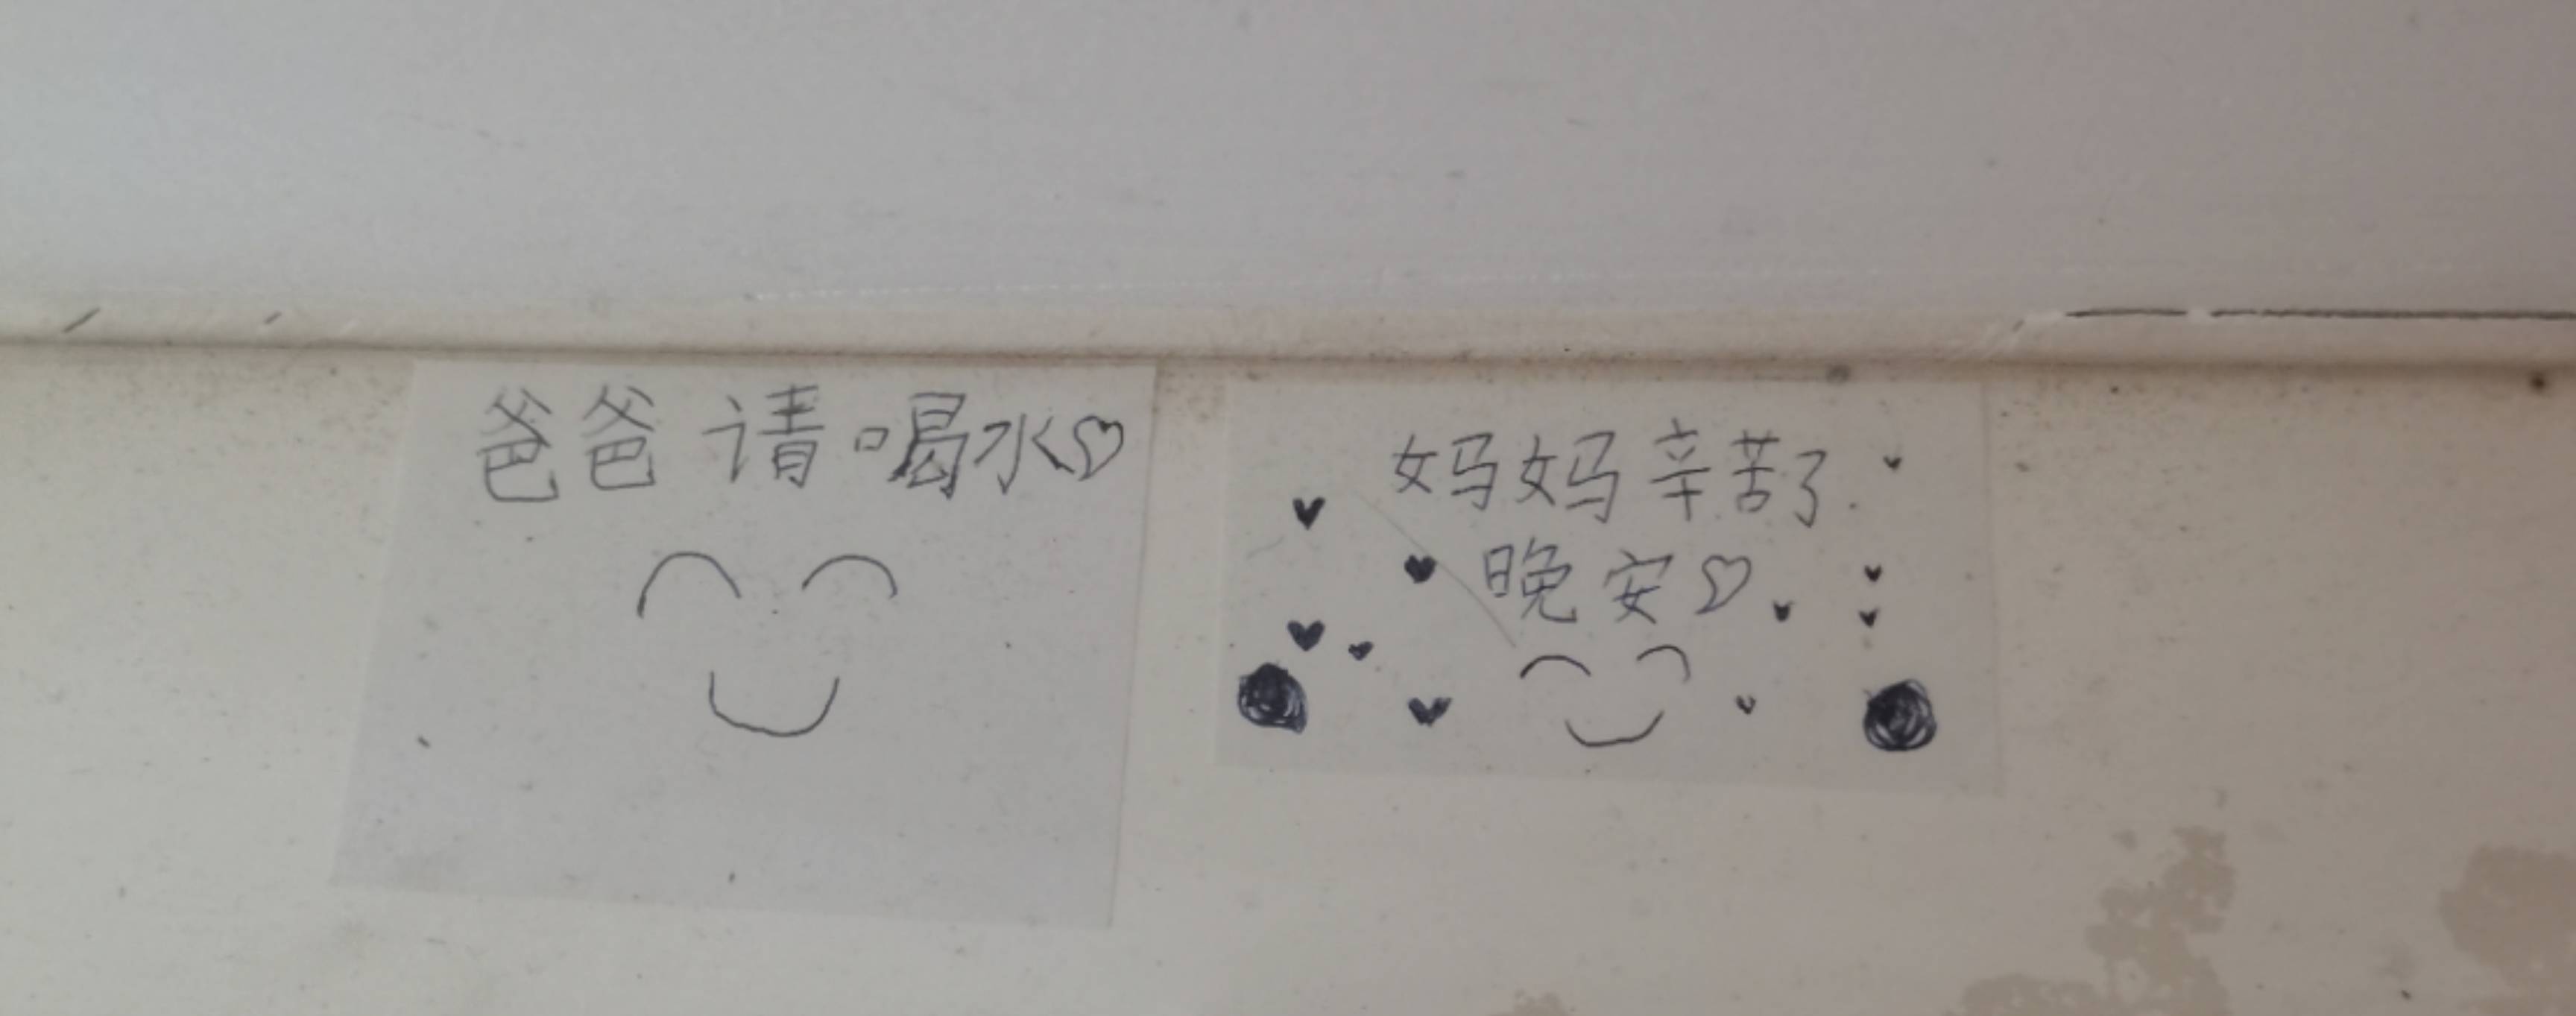 爸爸请喝水♡
妈妈辛苦了
晚安♡